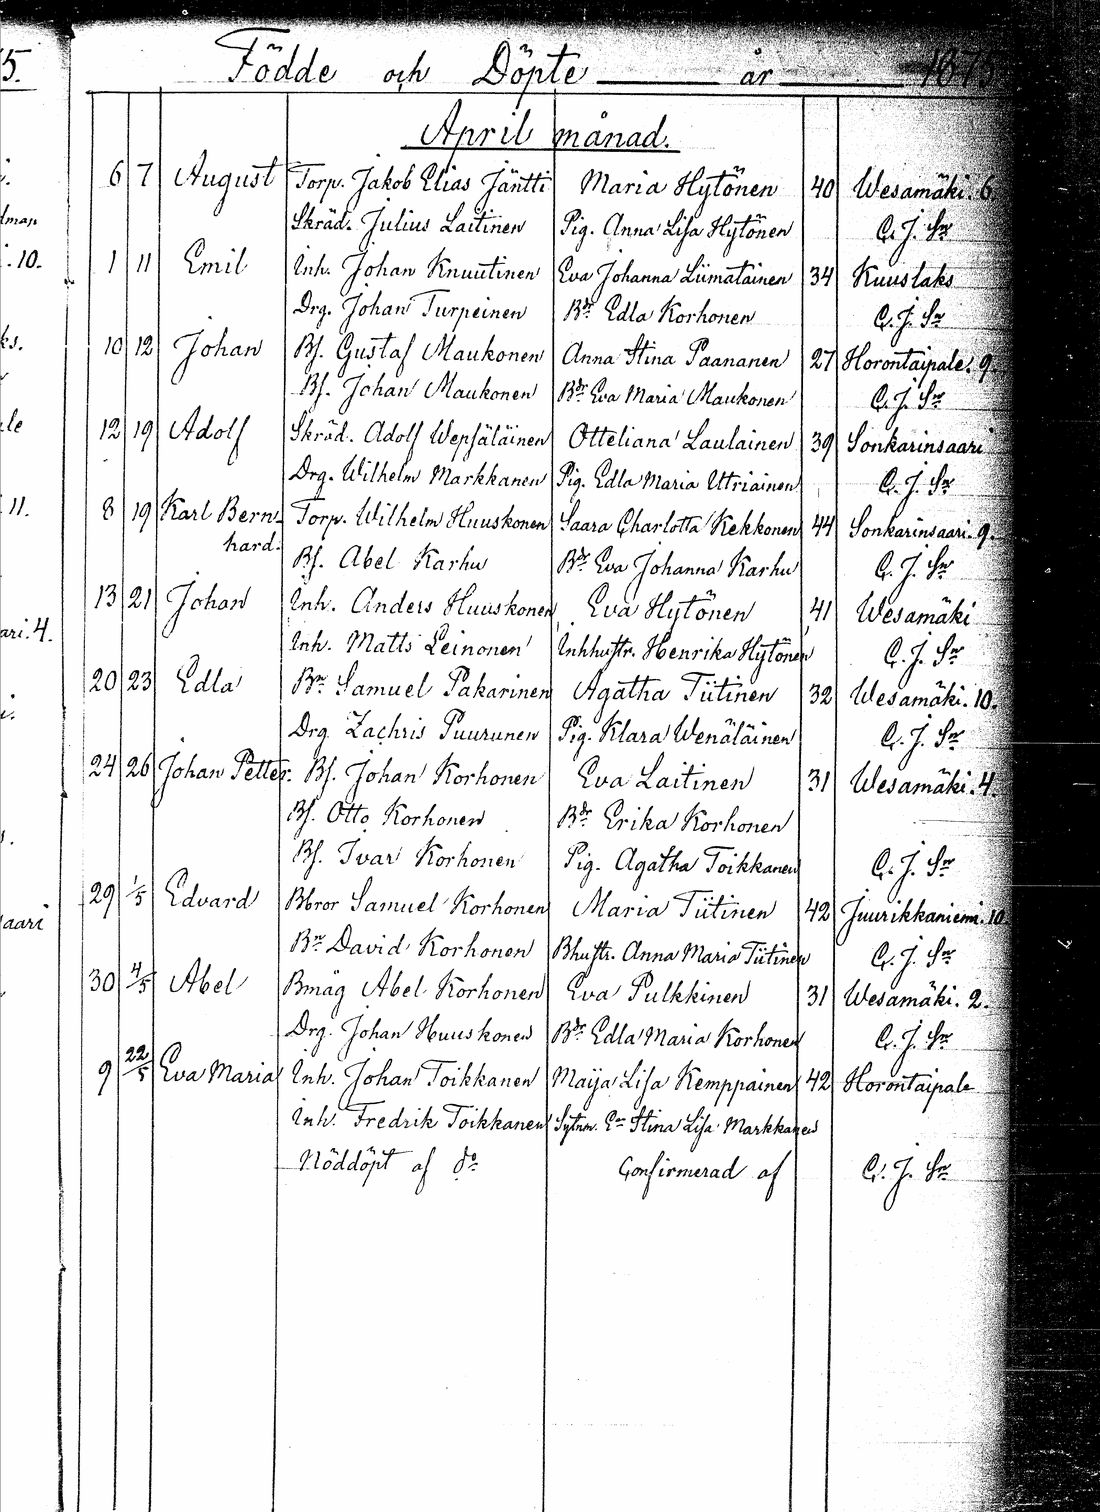 Födde och Döpte år 1875
April månad.
6 7 August Torp. Jakob Elias Jäntti Maria Hytönen 40 Wesamäki. 6.
Skräd. Julius Laitinen Pig. Anna Lisa Hytönen C. J. Sm
1 11 Emil Inh. Johan Knuutinen Eva Johanna Liimatainen 34 Kuuslaks
Drg. Johan Turpeinen Bdr Edla Korhonen C. J. Sm
10 12 Johan Bf. Gustaf Maukonen Anna Stina Paananen 27 Horontaipale. 9.
Bf. Johan Maukonen Bdr Eva Maria Maukonen C. J. Sm
12 19 Adolf Skräd. Adolf Wepsäläinen Otteliana Laulainen 39 Sonkarinsaari
Drg. Wilhelm Markkanen Pig. Edla Maria Utriainen C. J. Sm
8 19 Karl Bern- Torp. Wilhelm Huuskonen Saara Charlotta Kekkonen 44 Sonkarinsaari. 9.
hard. Bf. Abel Karhu Bdr Eva Johanna Karhu C. J. Sm
13 21 Johan Inh. Anders Huuskonen Eva Hytönen 41 Wesamäki
Inh. Matts Leinonen Inhhustr. Henrika Hytönen C. J. Sm
20 23 Edla Bn Samuel Pakarinen Agatha Tiitinen 32 Wesamäki. 10.
Drg. Zachris Puurunen Pig. Klara Wenäläinen C. J. Sm
24 26 Johan Petter. Bf. Johan Korhonen Eva Laitinen 31 Wesamäki. 4.
Bf. Otto Korhonen Bdr Erika Korhonen
Bf. Ivar Korhonen Pig. Agatha Toikkanen C. J. Sm
29 1/5 Edvard Bbror Samuel Korhonen Maria Tiitinen 42 Juurikkaniemi. 10.
Bn David Korhonen Bhustr. Anna Maria Tiitinen C. J. Sm
30 4/5 Abel Bmåg Abel Korhonen Eva Pulkkinen 31 Wesamäki. 2.
Drg. Johan Huuskonen Bdr Edla Maria Korhonen C. J. Sm
9 22/5 Eva Maria Inh. Johan Toikkanen Maija Lisa Kemppainen 42 Horontaipale
Inh. Fredrik Toikkanen Stina Lisa Markkanen
Nöddöpt af do Confirmerad af C. J. Sm